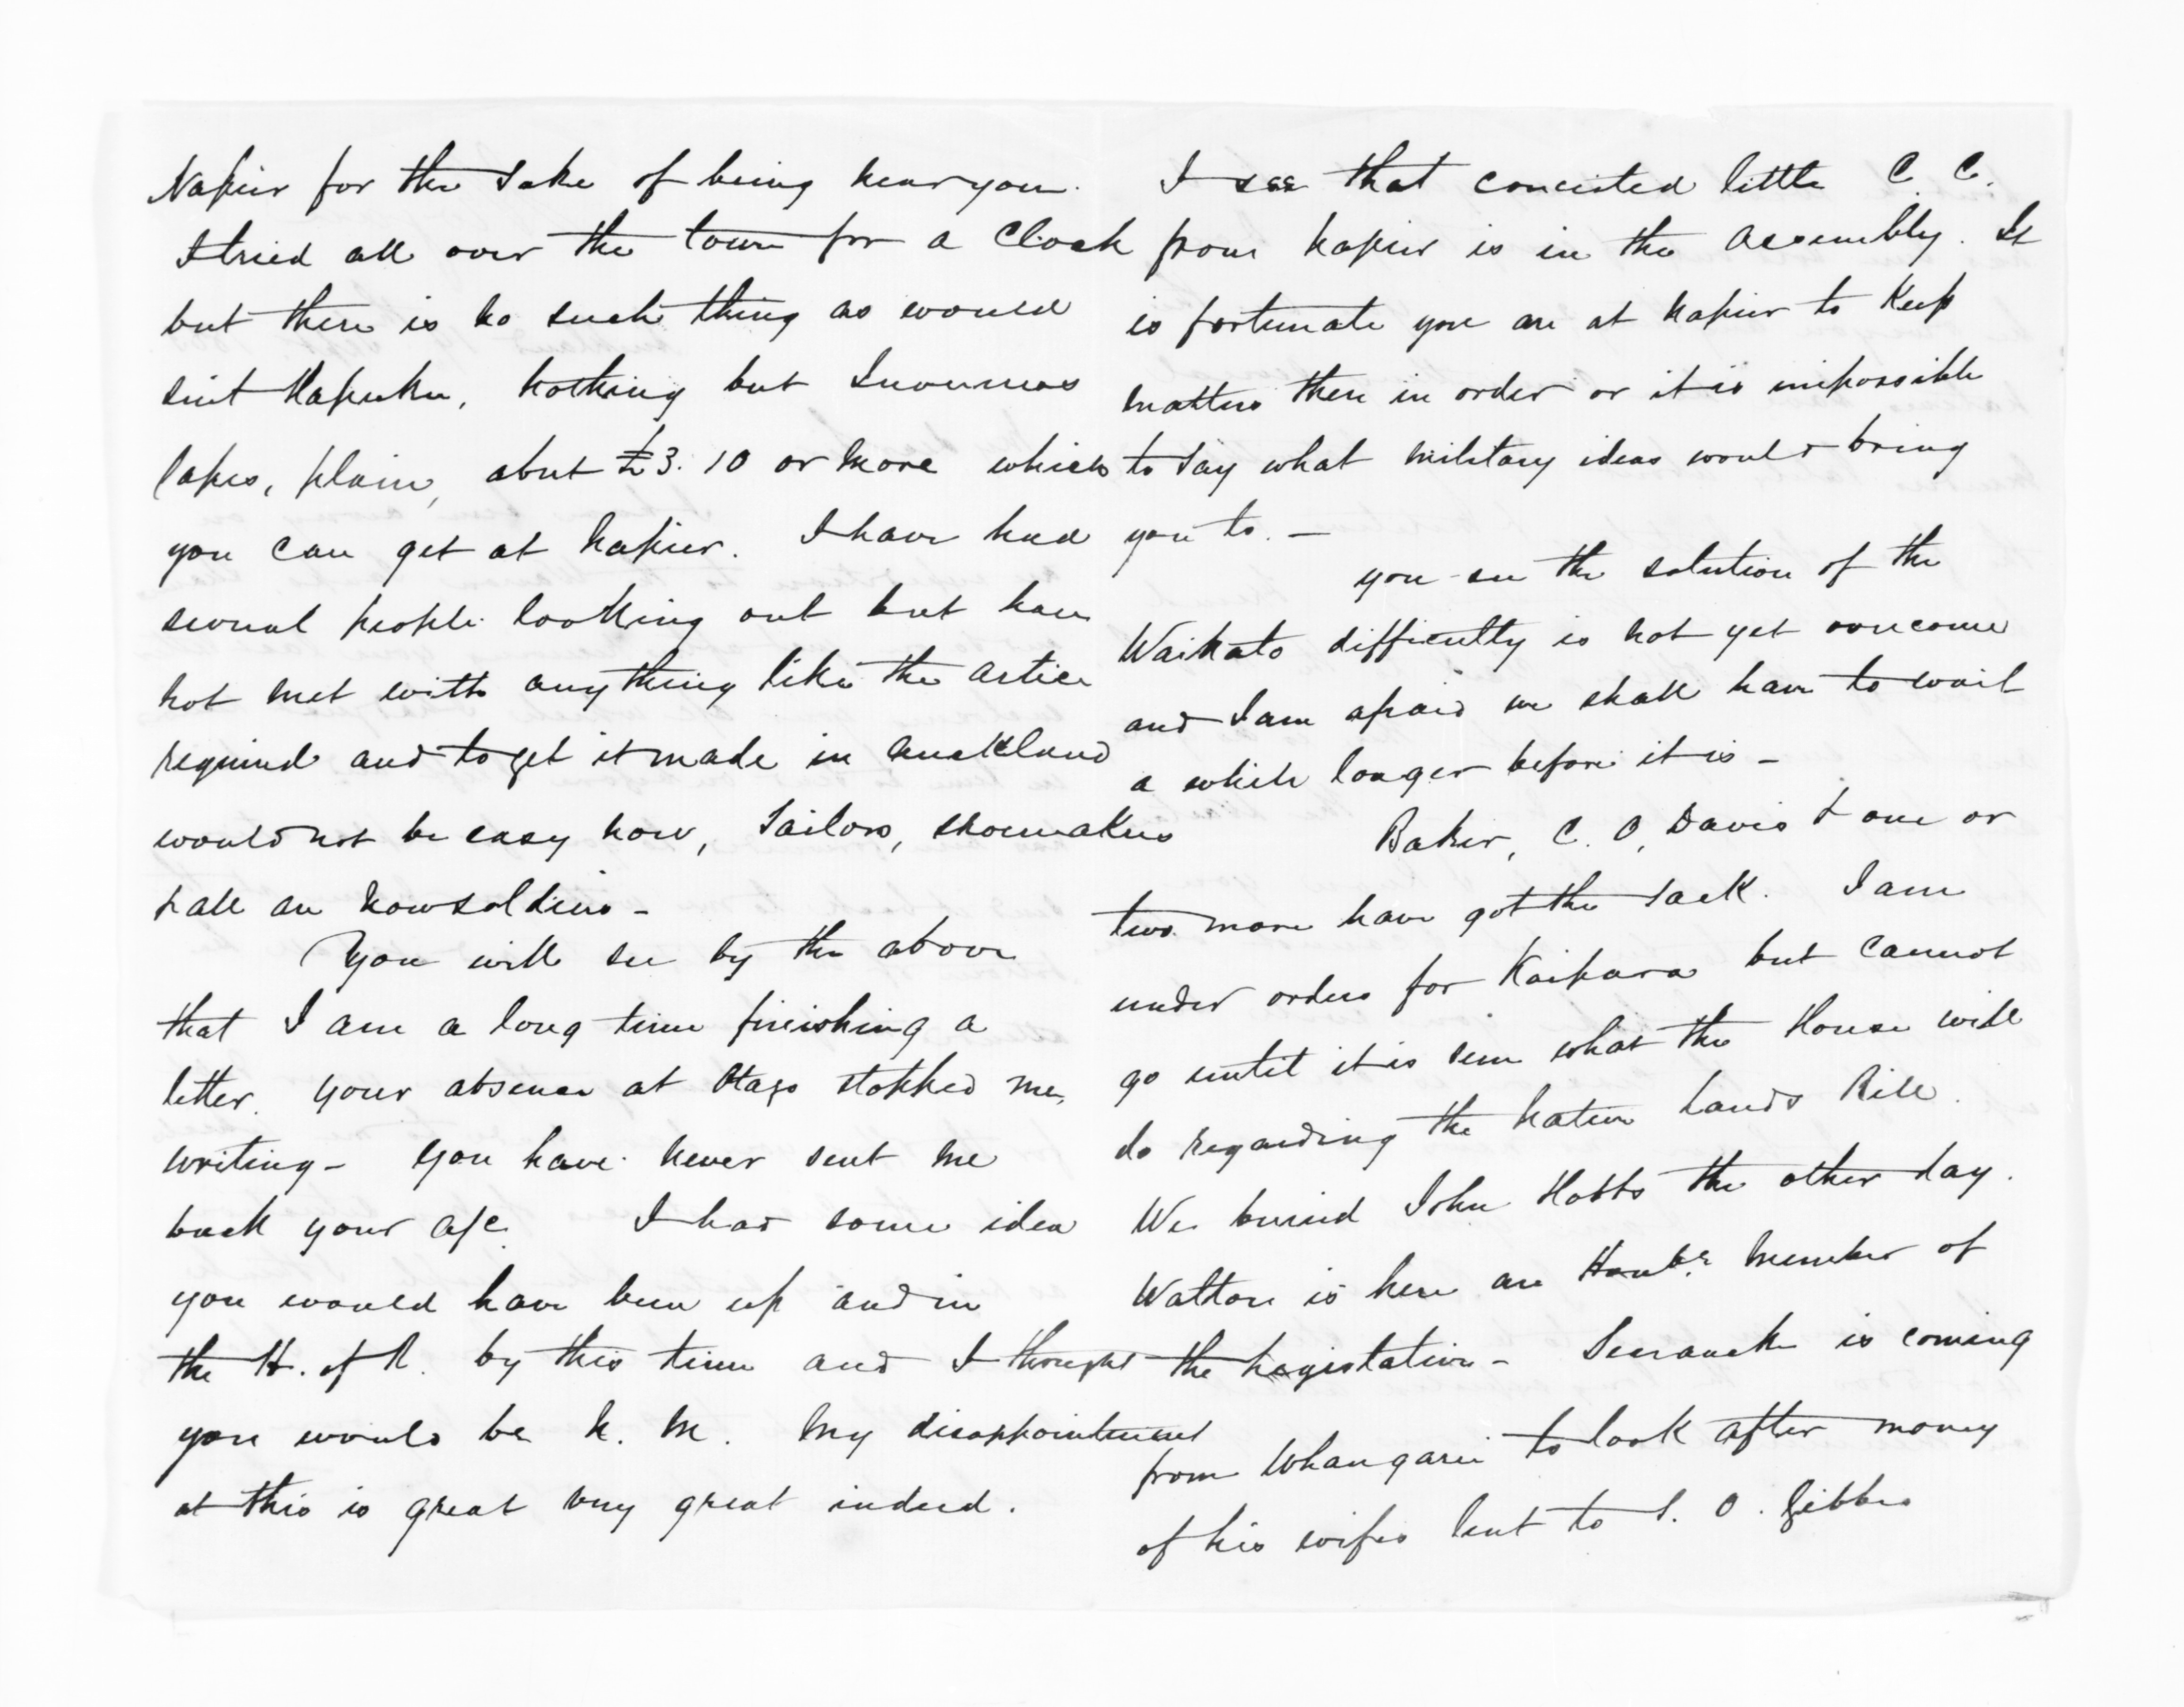 Napier for the sake of being near you.
I tried all over the town for a Cloak
but there is no such thing as would
suit Hapuku, nothing but Inverness
Capes, plain, about £3.10 or more which
you can get at Napier. I have had
several people looking out but have
not met with anything like the artice
required and to get it made in Auckland
would not be easy now, Tailors, shoemakers
& all are now soldiers -
You will see by the above
that I am a long time finishing a
letter. Your absence at Otago stopped me
writing - You have never sent me
back your a/c I had some idea
you would have been up and in
the H. of R. by this time and I thought
you would be N. M. My disappointment
at this is great very great indeed.
I see that conceited little C. C.
from Napier is in the Assembly. It
is fortunate you are at Napier to keep
matters there in order or it is impossible
to say what military ideas would bring
you to. -
you see the solution of the
Waikato difficulty is not yet overcome
and I am afraid we shall have to wait
a while longer before it is -
Baker, C. O. Davis & one or
two more have got the sack. I am
under orders for Kaipara but cannot
go until it is seen what the House will
do regarding the Native Lands Bill.
We buried John Hobbs the other day.
Watton is here an Honble. Member of
the Legislature - is coming
from Whangarei to look after money
of his wifes lent to S. O. Gibbes